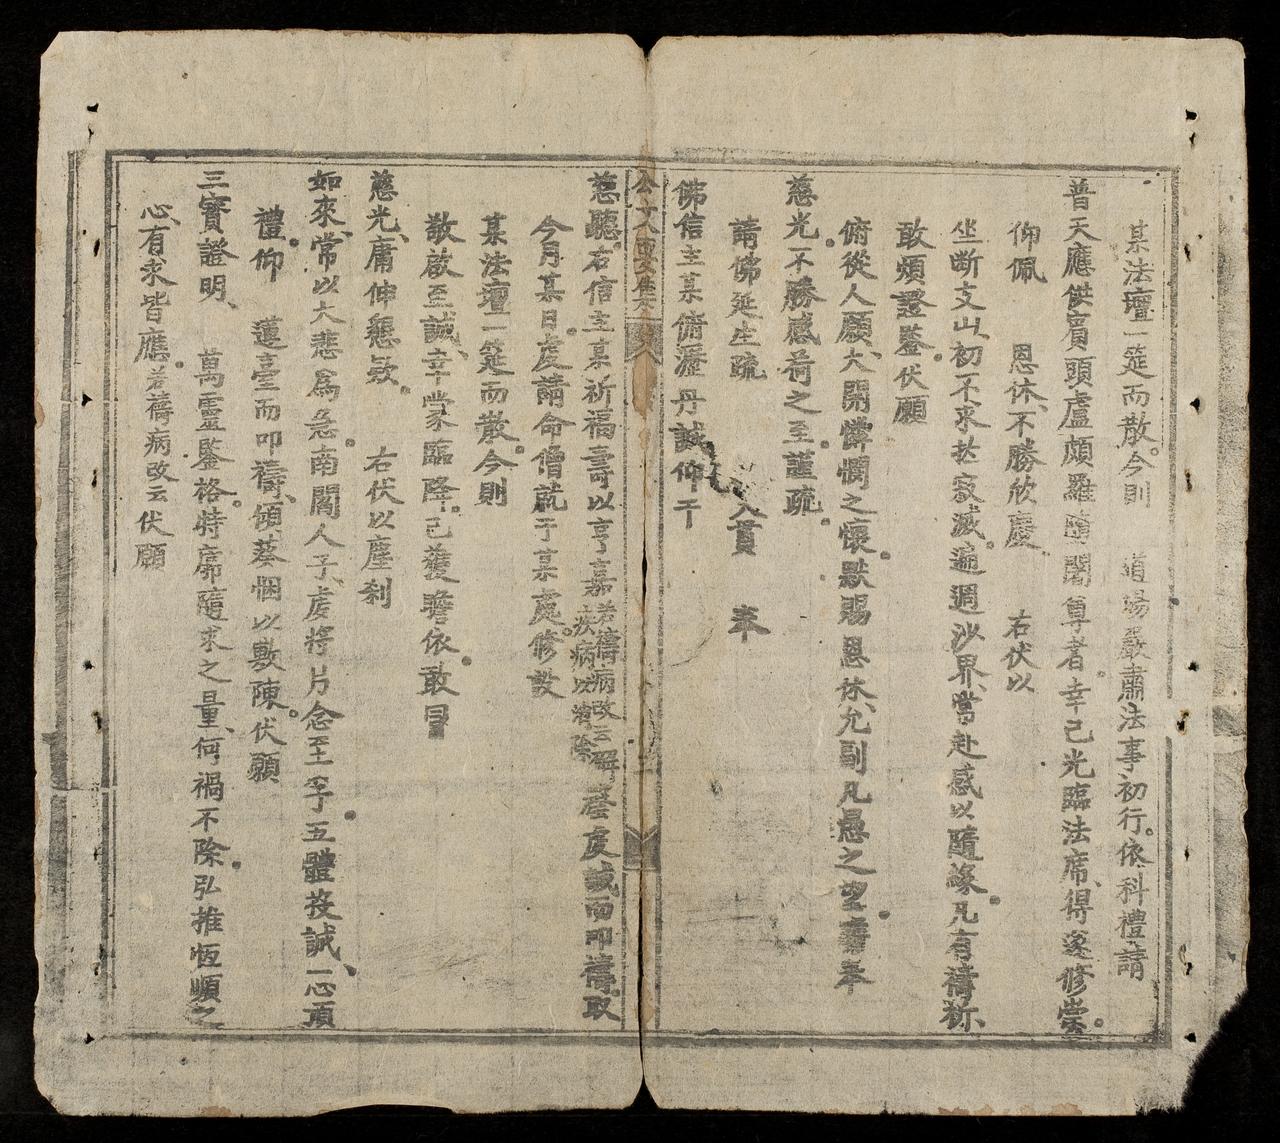 某法壇一筵而散今則 道場嚴肅法事初行依科禮請
普天應供賓頭盧頗羅隨闍尊者幸已光臨法席得遂修崇
仰佩 恩休不勝欣慶 右伏以
坐斷支山初不求於寂滅遍週沙界常赴感以隨緣凡有禱祈
敢煩證鑒伏願
俯從人願大開憐憫之懷默賜恩休允副凡愚之望書奉
慈光不勝感荷之至謹疏
請佛延生疏 入貫 奉
佛信主某俯瀝丹誠仰干
慈聽右信主某祈福壽以亨嘉若禱病改云解疾病以消除磬虔誠而叩禱取
今月某日虔請命僧就于某處修設
某法壇一筵而散今則
散啟至誠幸蒙臨降已獲瞻依敢冒
慈光庸伸懇敫 右伏以塵剎
如來常以大悲為急南閻人子虔將片念至孚五體投誠一心頂
禮仰 蓮臺而叩禱傾葵悃以敷陳伏願
三寶證明 萬靈鑒格特廓隨求之量何禍不除弘推恆順之
心有求皆應若禱病改云伏願